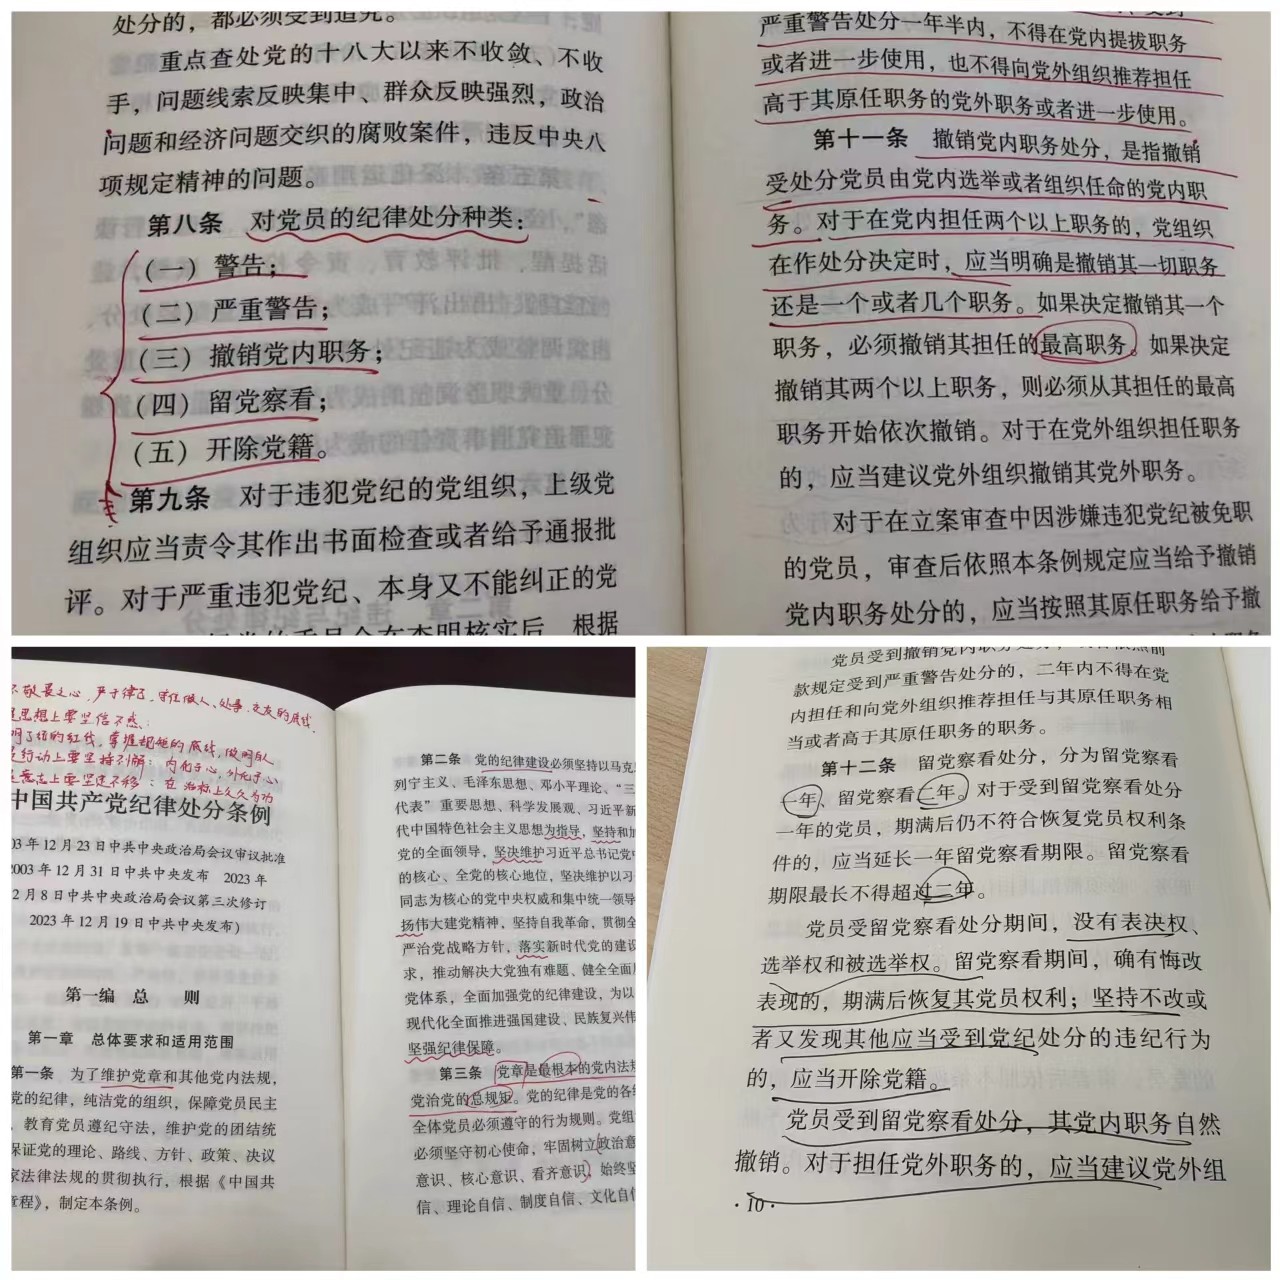 处分的，都必须受到追究。
重点查处党的十八大以来不收敛、不收
手，问题线索反映集中、群众反映强烈，政治
问题和经济问题交织的腐败案件，违反中央八
项规定精神的问题。
第八条 对党员的纪律处分种类：
（一）警告；
（二）严重警告；
（三）撤销党内职务；
（四）留党察看；
（五）开除党籍。
第九条 对于违犯党纪的党组织，上级党
组织应当责令其作出书面检查或者给予通报批
评。对于严重违犯党纪、本身又不能纠正的党
严重警告处分一年半内，不得在党内提拔职务
或者进一步使用，也不得向党外组织推荐担任
高于其原任职务的党外职务或者进一步使用。
第十一条 撤销党内职务处分，是指撤销
受处分党员由党内选举或者组织任命的党内职
务。对于在党内担任两个以上职务的，党组织
在作处分决定时，应当明确是撤销其一切职务
还是一个或者几个职务。如果决定撤销其一个
职务，必须撤销其担任的最高职务。如果决定
撤销其两个以上职务，则必须从其担任的最高
职务开始依次撤销。对于在党外组织担任职务
的，应当建议党外组织撤销其党外职务。
对于在立案审查中因涉嫌违犯党纪被免职
的党员，审查后依照本条例规定应当给予撤销
党内职务处分的，应当按照其原任职务给予撤
敬畏之心，严于律己，守住做人、处事、交友的底线
思想上要坚信不疑：
明了纪的红线，掌握规矩的底线，做明白人
行动上要坚持不懈：内化于心，外化于心
意志上要坚定不移：在 上久久为功
中国共产党纪律处分条例
03 年 12 月 23 日中共中央政治局会议审议批准
2003 年 12 月 31 日中共中央发布 2023 年
2 月 8 日中共中央政治局会议第三次修订
2023 年 12 月 19 日中共中央发布）
第一编 总 则
第一章 总体要求和适用范围
第一条 为了维护党章和其他党内法规，
党的纪律，纯洁党的组织，保障党员民主
，教育党员遵纪守法，维护党的团结统
保证党的理论、路线、方针、政策、决议
家法律法规的贯彻执行，根据《中国共
章程》，制定本条例。
第二条 党的纪律建设必须坚持以马克
列宁主义、毛泽东思想、邓小平理论、“三
代表”重要思想、科学发展观、习近平新
代中国特色社会主义思想为指导，坚持和加
党的全面领导，坚决维护习近平总书记党中
的核心、全党的核心地位，坚决维护以习
同志为核心的党中央权威和集中统一领导
扬伟大建党精神，坚持自我革命，贯彻全
严治党战略方针，落实新时代党的建设
求，推动解决大党独有难题、健全全面
党体系，全面加强党的纪律建设，为以
现代化全面推进强国建设、民族复兴伟
坚强纪律保障。
第三条 党章是最根本的党内法规
党治党的总规矩。党的纪律是党的各
全体党员必须遵守的行为规则。党组
必须坚守初心使命，牢固树立政治意
意识、核心意识、看齐意识，始终坚
信、理论自信、制度自信、文化自信
党员受到撤销党内职务处分，或者依照前
款规定受到严重警告处分的，二年内不得在党
内担任和向党外组织推荐担任与其原任职务相
当或者高于其原任职务的职务。
第十二条 留党察看处分，分为留党察看
一年、留党察看二年。对于受到留党察看处分
一年的党员，期满后仍不符合恢复党员权利条
件的，应当延长一年留党察看期限。留党察看
期限最长不得超过二年。
党员受留党察看处分期间，没有表决权、
选举权和被选举权。留党察看期间，确有悔改
表现的，期满后恢复其党员权利；坚持不改或
者又发现其他应当受到党纪处分的违纪行为
的，应当开除党籍。
党员受到留党察看处分，其党内职务自然
撤销。对于担任党外职务的，应当建议党外组
· 10 ·